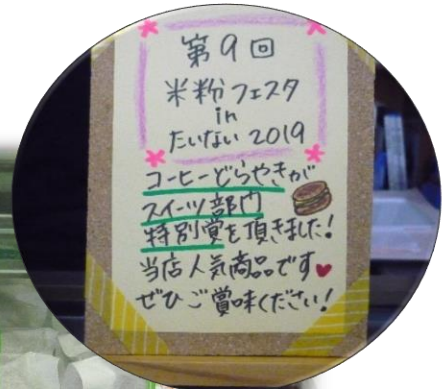 第9回
米粉フェスタ
in
たいない 2019
コーヒーどらやきが
スイーツ部門
特別賞を頂きました!
当店人気商品です♥
ぜひご賞味ください!